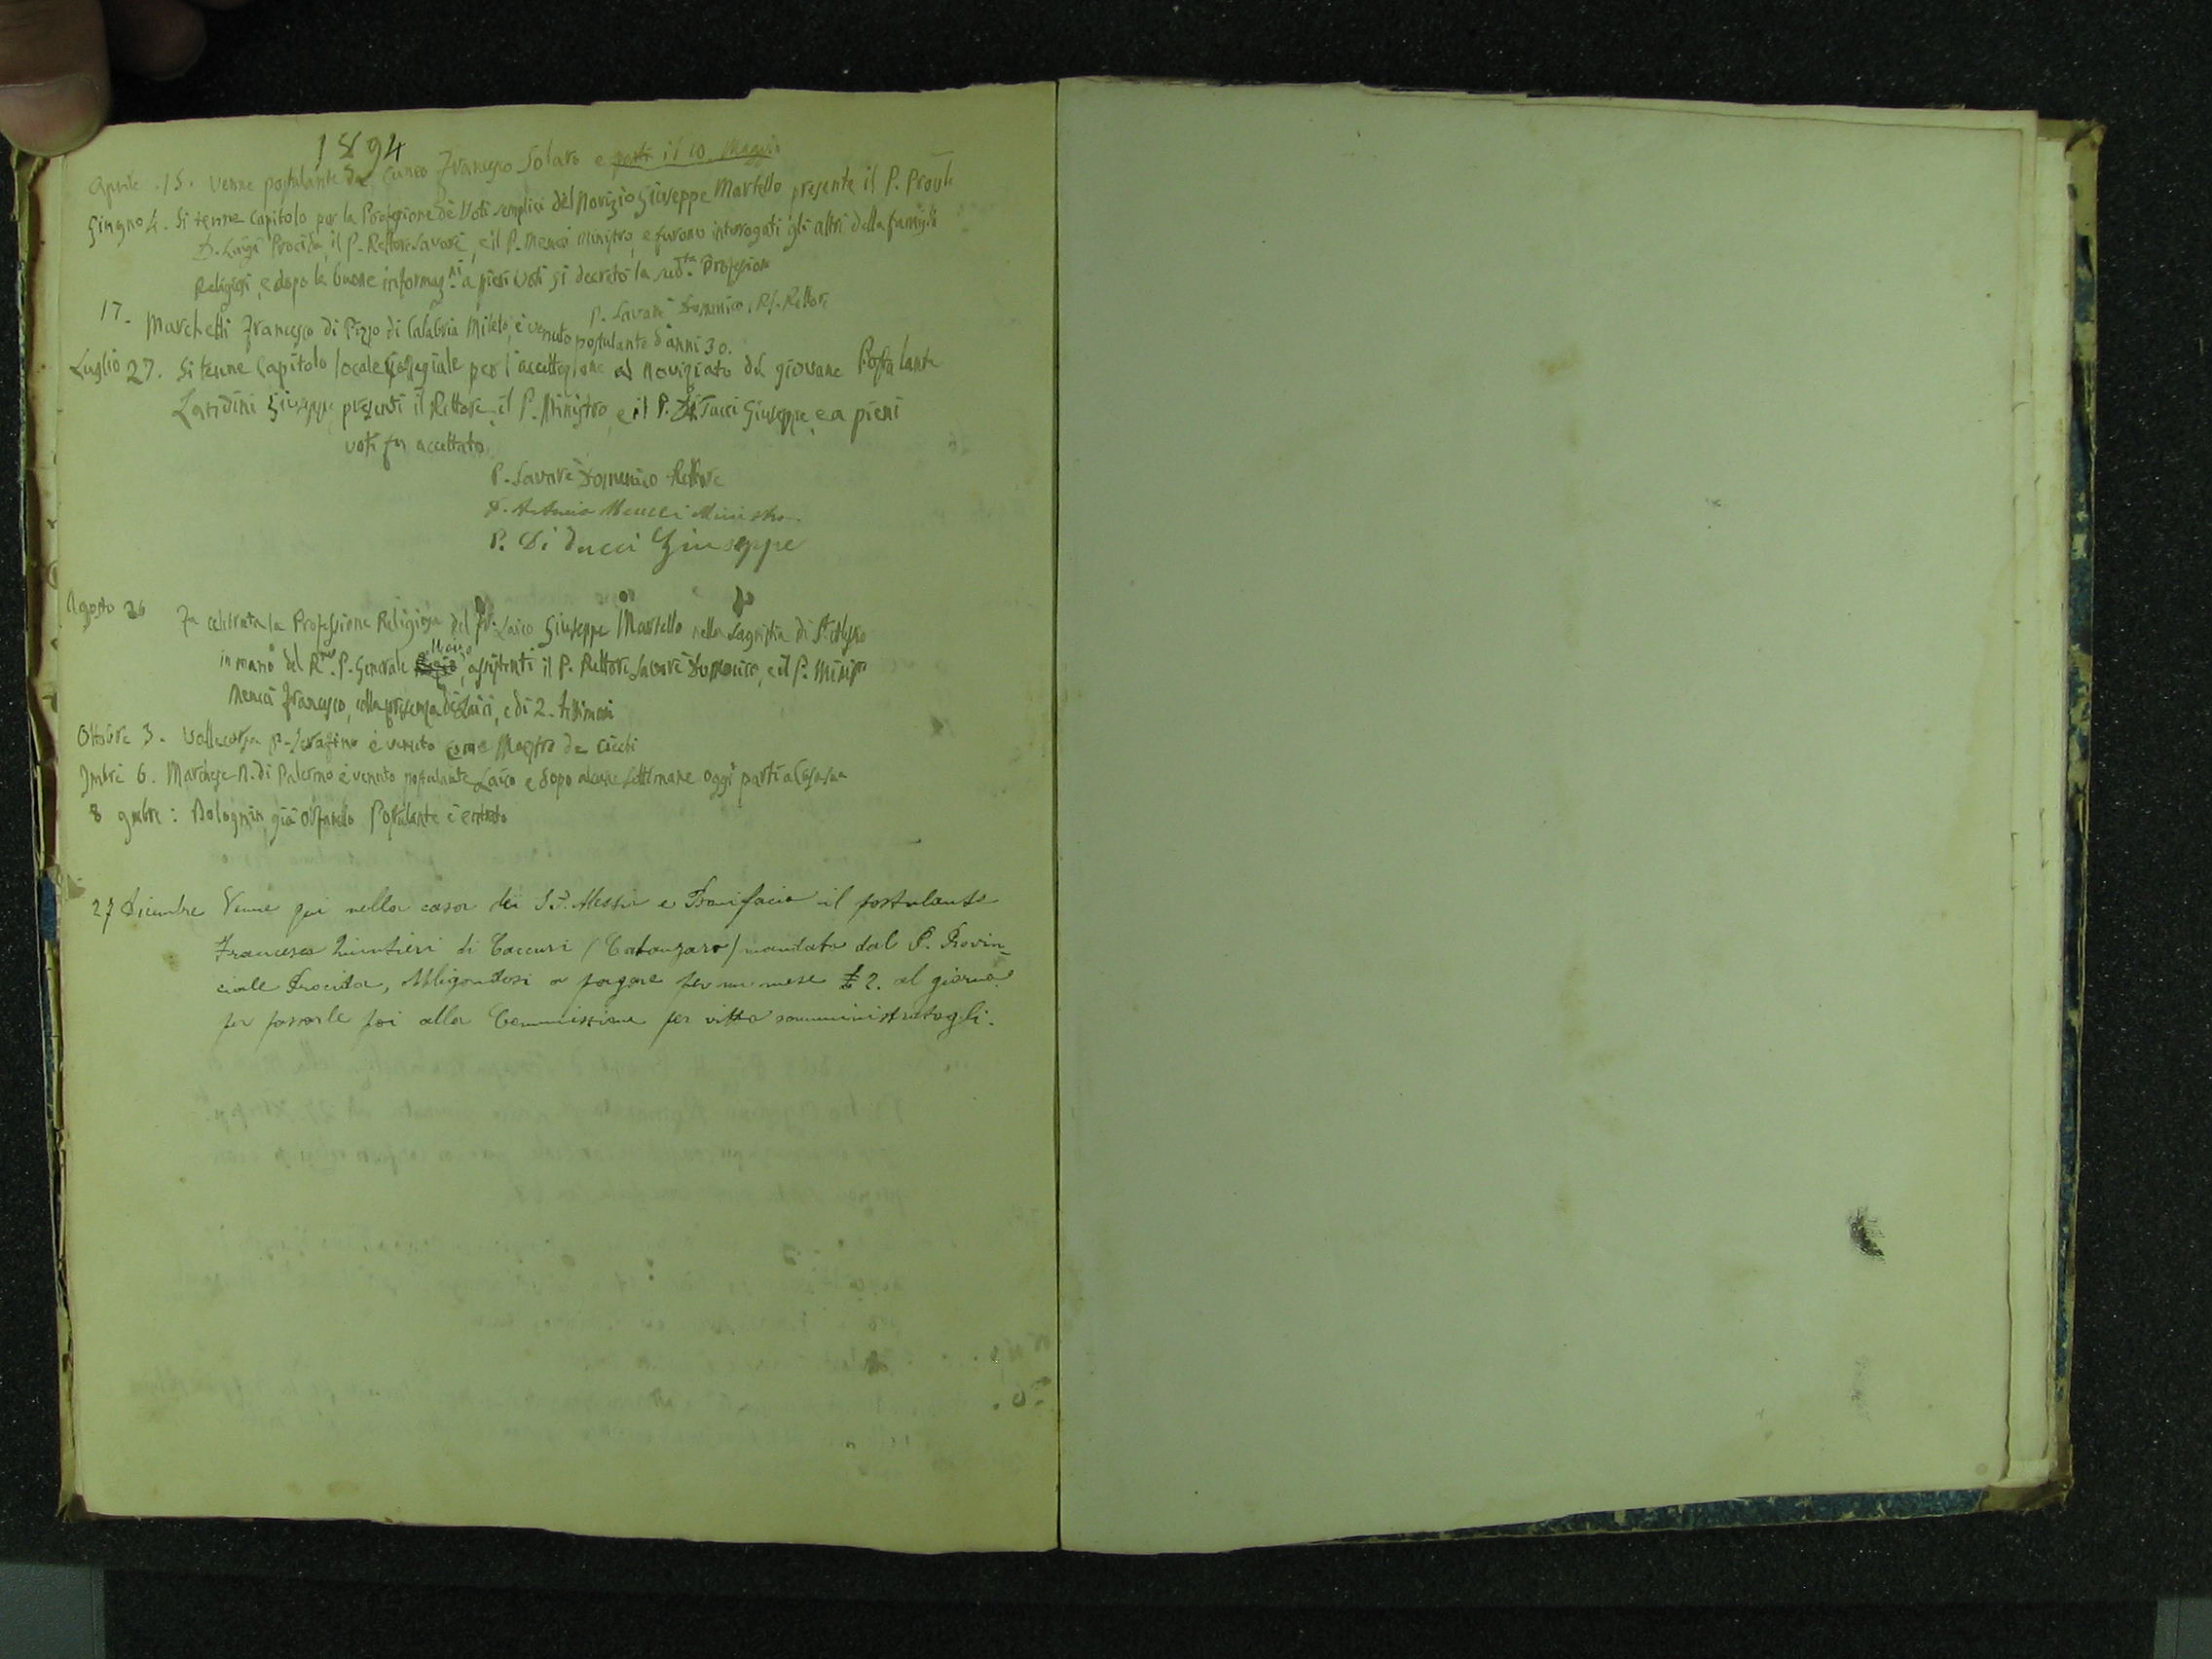 1894
Aprile .15. Venne postulante da Cuneo Francesco Solaro e partì il 10. Maggio
Giugno 4. Si tenne Capitolo per la Professione de Voti semplici del Novizio Giuseppe Martello presente il P. Prov.le
D. Luigi Procida, il P. Rettore Savarè, e il P. Menci Ministro, e furono interrogati gli altri della famigli
Religiosi, e dopo le buone informaz.ni a pieni Voti si decretò la sud.ta Profession
P. Savarè Domenico, Rettore
17. Marchetti Francesco di Pizzo di Calabria Mileto, è venuto postulante d'anni 30.
Luglio 27. Si tenne Capitolo locale Collegiale per l'accettazione al Noviziato del giovane Postulante
Landini Giuseppe, presenti il Rettore, il P. Ministro, e il P. Di Tucci Giuseppe, e a pieni
voti fu accettato
P. Savarè Domenico Rettore
Ministro
P. Di Tucci Giuseppe
Agosto 26 Fu celebrata la Professione Religiosa del Fr. Laico Giuseppe Martello nella Sagristia di S. Alessio
in mano del R.mo P. Generale assistenti il P. Rettore Savarè Domenico, e il P. Minist
Menci Francesco, colla presenza di Laici, e di 2. testimoni
Ottobre 3. Vallecorsa P. Serafino è venuto come Maestro de ciechi
9mbre 6. Marchese N. di Palermo è venuto postulante Laico e dopo alcune settimane oggi partì a Casa sua
8 9mbre : Bolognin, già Orfanello Postulante è entrato
27 Dicembre Venne qui nella casa dei S.S. Alessio e Bonifacio il postulante
Francesco Quintieri di Caccuri (Catanzaro) mandato dal P. Provin-
ciale Procida, obligandosi a pagare per un mese £ 2. al giorno
per passarle poi alla Commissione per vitto somministratogli.